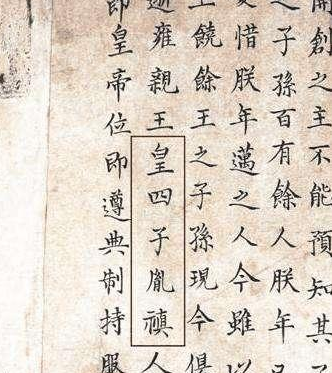 開創之主不能預知其
之子孫百有餘人朕年
惜朕年邁之人今雖以
王饒餘王之子孫現今俱
雍親王皇四子胤禛人
即皇帝位即遵典制持服